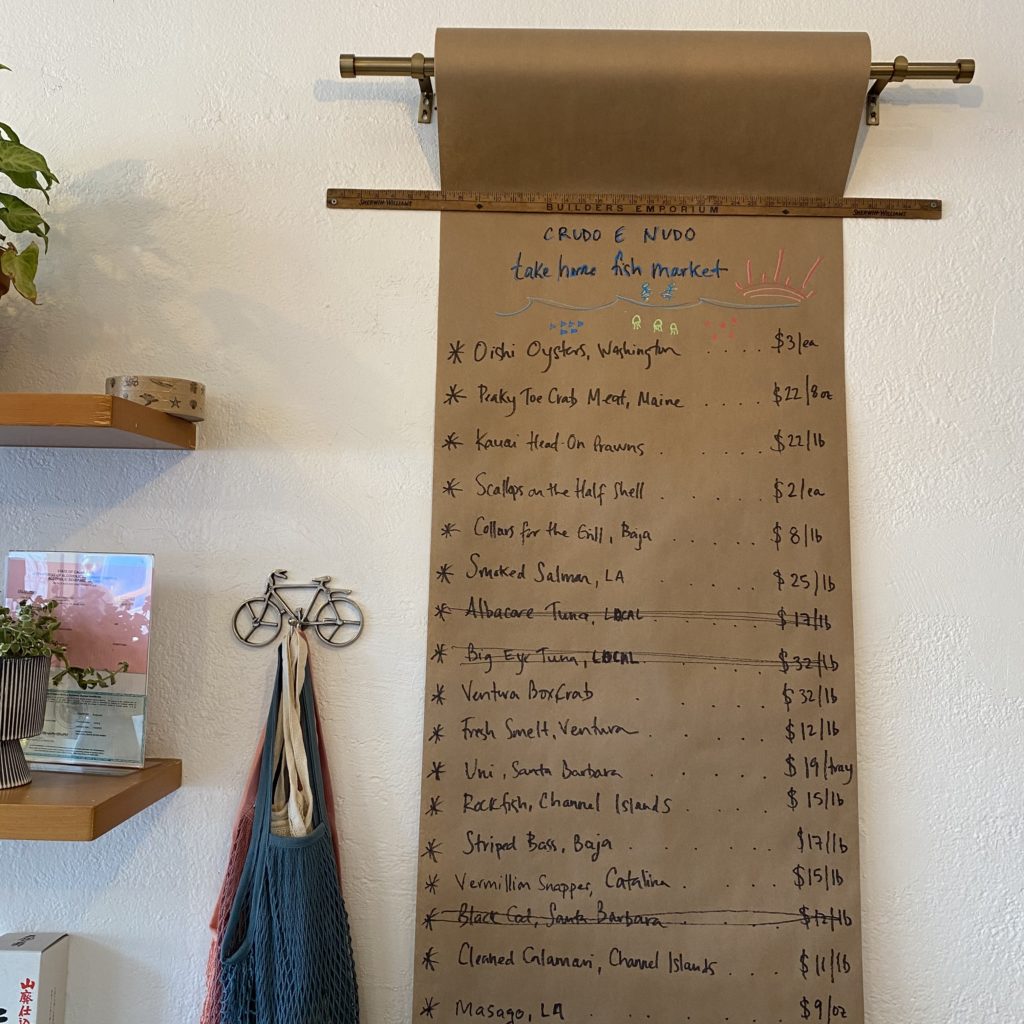 SHERWIN-WILLIAMS BUILDERS EMPORIUM SHERWIN-WILLIAMS
CRUDO E NUDO
take home fish market
* Oishi Oysters, Washington . . . . $3/ea
* Peaky Toe Crab Meat, Maine . . . . $22/8oz
* Kauai Head-On Prawns . . . . . $22/lb
* Scallops on the Half Shell . . . . . $2/ea
* Collars for the Grill, Baja . . . . $8/lb
* Smoked Salmon, LA . . . . $25/lb
* Albacore Tuna, LOCAL . . . . . $17/lb
* Big Eye Tuna, LOCAL . . . . . $32/lb
* Ventura Box Crab . . . . $32/lb
* Fresh Smelt, Ventura . . . . . $12/lb
* Uni, Santa Barbara . . . . . $19/tray
* Rockfish, Channel Islands . . . . $15/lb
* Striped Bass, Baja . . . . . $17/lb
* Vermillion Snapper, Catalina . . . . $15/lb
* Black Cod, Santa Barbara . . . . $12/lb
* Cleaned Calamari, Channel Islands . . . $11/lb
* Masago, LA . . . . . $9/oz
山廃仕込